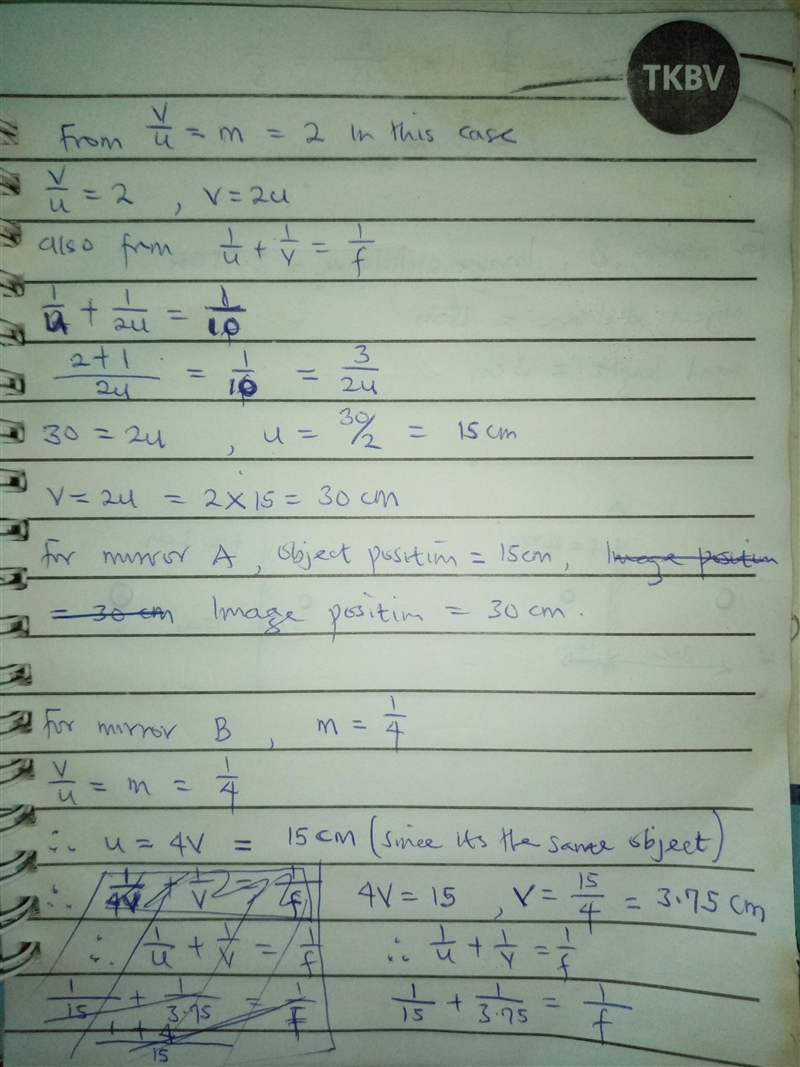 TKBV
From V/u = m = 2 in this case
V/u = 2 , V = 2u
also from 1/u + 1/V = 1/f
1/u + 1/2u = 1/10
2+1/2u = 1/10 = 3/2u
30 = 2u , u = 30/2 = 15 cm
V = 2u = 2 × 15 = 30 cm
For mirror A, object position = 15cm, Image position
= 30 cm Image position = 30 cm.
For mirror B , m = 1/4
V/u = m = 1/4
∴ u = 4V = 15 cm (since its the same object)
∴ 1/4V + 1/V = 1/f 4V = 15 , V = 15/4 = 3.75 cm
∴ 1/u + 1/V = 1/f ∴ 1/u + 1/V = 1/f
1/15 + 1/3.75 = 1/f 1/15 + 1/3.75 = 1/f
1 + 4/15